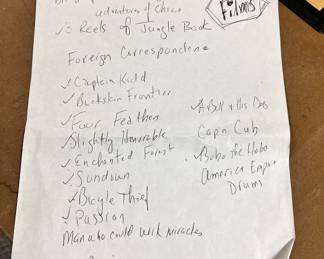 adventures of Chico
Films
✓3 Reels of Jungle Book
Foreign Correspondence
✓Captain Kidd
✓Buckskin Frontier
✓Four Feathers
✓Slightly Honorable
✓Enchanted Forest
✓Sundown
✓Bicyle Thief
✓Passion
Man who could work miracles
A Boy + His Dog
Cap'n Cub
✓Bobo the Hobo
America Empire
Drums